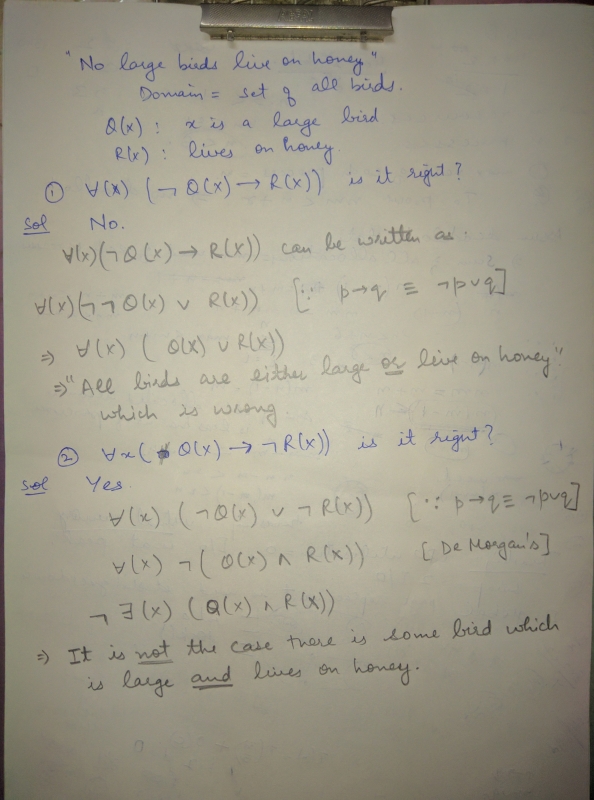 "No large birds live on honey"
Domain = set of all birds.
Q(x) : x is a large bird
R(x) : lives on honey
① ∀(x) (¬ Q(x) → R(x)) is it right?
Sol No.
∀(x)(¬Q(x) → R(x)) can be written as.
∀(x)(¬¬Q(x) ∨ R(x)) [∵ p→q ≡ ¬p∨q]
⇒ ∀(x) ( Q(x) ∨ R(x))
⇒ "All birds are either large or live on honey"
which is wrong
② ∀x( Q(x) → ¬R(x)) is it right?
Sol Yes
∀(x) (¬Q(x) ∨ ¬R(x)) [∵ p→q ≡ ¬p∨q]
∀(x) ¬( Q(x) ∧ R(x)) [De Morgan's]
¬∃(x) (Q(x) ∧ R(x))
⇒ It is not the case there is some bird which
is large and lives on honey.